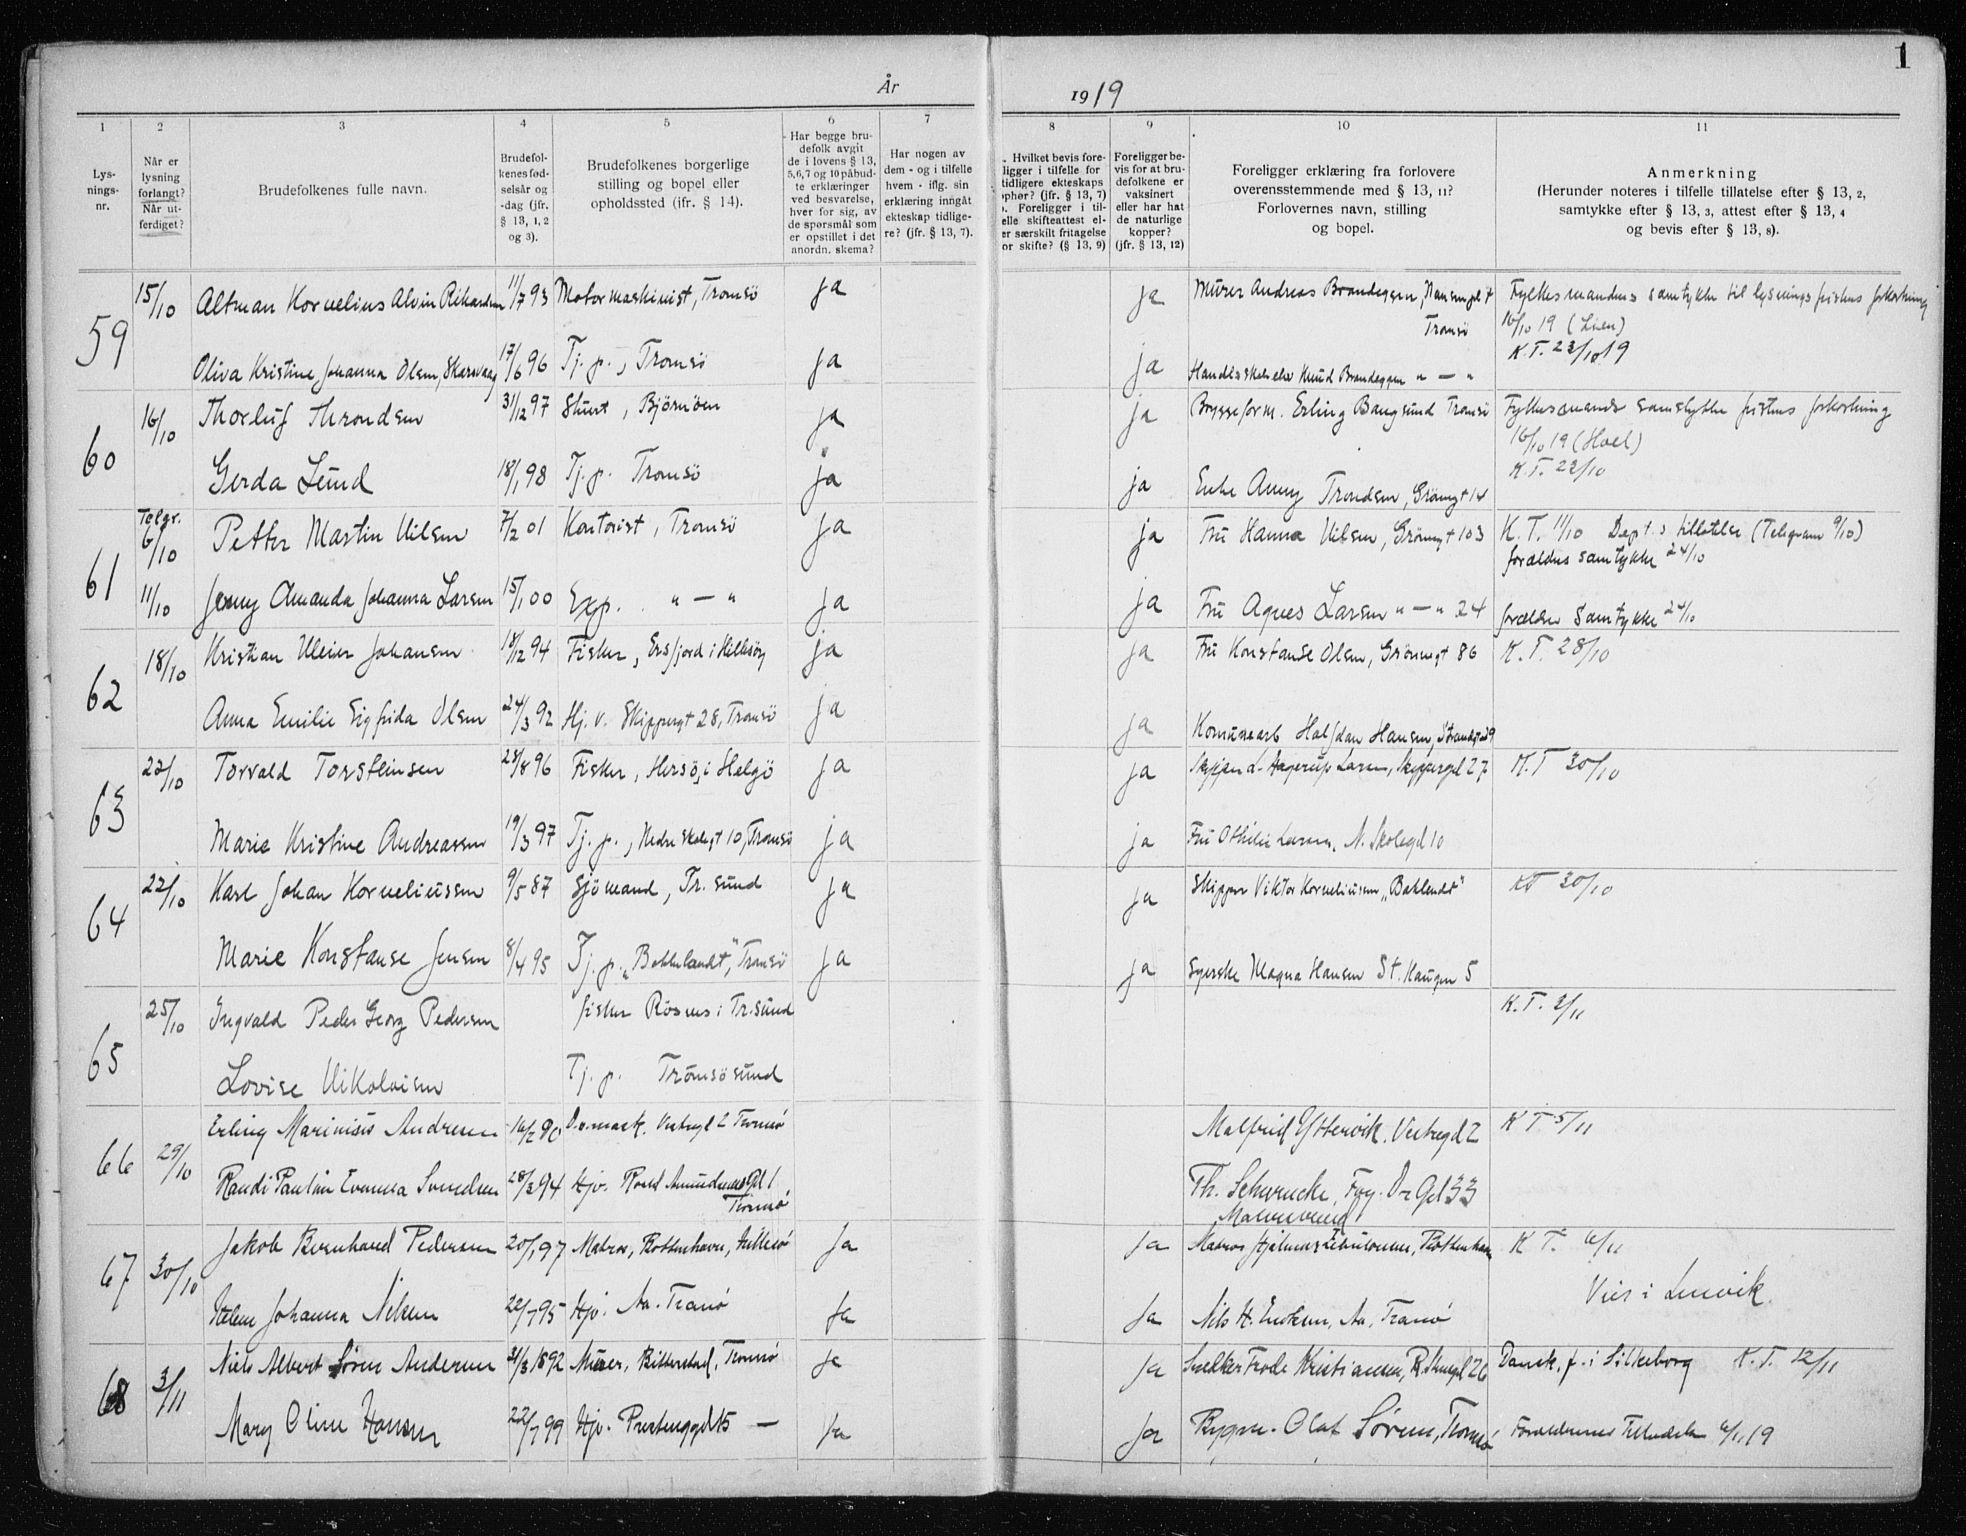 1
År
1919
1
2
3
4
5
6
7
8
9
10
11
Lysningsnr.
Når er lysning forlangt? Når utferdiget?
Brudefolkenes fulle navn.
Brudefolkenes fødselsår og -dag (jfr. § 13, 1, 2 og 3).
Brudefolkenes borgerlige stilling og bopel eller opholdssted (ifr. § 14).
Har begge brudefolk avgit de i lovens § 13, 5,6,7 og 10 påbudte erklæringer ved besvarelse, hver for sig, av de spørsmål som er opstillet i det anordn. skema?
Har nogen av dem - og i tilfelle hvem - iflg. sin erklæring inngåt ekteskap tidligere? (jfr. § 13, 7).
. Hvilket bevis foreligger i tilfelle for tidligere ekteskaps ophør? (jfr. § 13, 7) . Foreligger i tilelle skifteattest eler særskilt fritagelse or skifte? (§ 13, 9)
Foreligger bevis for at brudefolkene er vaksinert eller har hat de naturlige kopper? (jfr. § 13, 12)
Foreligger erklæring fra forlovere overensstemmende med § 13, 11? Forlovernes navn, stilling og bopel.
Anmerkning (Herunder noteres i tilfelle tillatelse efter § 13, 2, samtykke efter § 13, 3, attest efter § 13, 4 og bevis efter § 13, 8).
59 15/10 Altman Kornelius Alvin Rikardsen 11/7 93 Motormaskinist, Tromsö ja ja Murer Andreas Brandeggen, Tromsö Fylkesmandens samtykke til lysningsfristens forkortning
16/10 19 (Lien)
K.T. 23/10 19
Oliva Kristine Johanna Olsen, Skarsvaag 17/6 96 Tj. p., Tromsö ja ja Knud Brandeggen " — "
60 16/10 Thorleif Throndsen 31/12 97 Stuert, Björnöen ja ja Bryggeform. Erling Bangsund Tromsö Fylkesmands samtykke fristens forkortning
16/10 19 (Hoel)
K.T. 22/10
Gerda Lund 18/1 98 Tj. p. Tromsö ja ja Enke Anny Trondsen, Grönngt 14
61 Telgr. 6/10 Petter Martin Nilsen 7/2 01 Kontorist, Tromsö ja ja Fru Hanna Nilsen, Grönngt 103 K.T. 11/10 Dept.s tillatelse (Telegram 9/10)
forældres samtykke 24/10
11/10 Jenny Amanda Johanna Larsen 15/1 00 Exp. " — " ja ja Fru Agnes Larsen " — " 24 forældres samtykke 24/10
62 18/10 Kristian Johansen 18/12 94 Fisker, Ersfjord i Hillesöy ja ja Fru Konstanse Olsen, Grönnegt 86 K.T. 28/10
Anna Emilie Sigfrida Olsen 24/3 92 Hj. v. Skippergt 28, Tromsö ja ja Halfdan Hansen, Strandgt 39
63 22/10 Torvald Torsteinsen 28/8 96 Fisker, i Helgö ja ja Hagerup Larsen, Skippergt 27 K.T 30/10
Marie Kristine Andreassen 19/3 97 Tj. p., Nedre Skolegt 10, Tromsö ja ja Fru Othilie Larsen, N. Skolegt 10
64 22/10 Karl Johan Korneliussen 9/5 87 Sjömand, Tr. sund ja ja Skipper Viktor Korneliussen, "Bakkendt" KT 30/10
Marie Konstanse Jensen 8/4 95 Tj. p. "Bakkelandt", Tromsö ja ja Syerske Magna Hansen St. Haugen 5
65 25/10 Ingvald Peder Georg Pedersen fisker i Tr.sund K.T. 2/11
Lovise Nikolaisen Tj. p. Tromsösund
66 29/10 Erling Marinius Andresen 16/2 90 Vestregt 2 Tromsø Malfrid Yttervik. Vestregt 2 KT 5/11
Randi Paulin Svendsen 28/3 94 Hjv. Roald Amundsens Gt 1 Tromsø Th. Schwencke, Gt 33
67 30/10 Jakob Bernhard Pedersen 20/1 97 Matros, Rottenhavn, Hillesø Ja Ja Matros Rottenhavn K T. 6/11
Vies i Lenvik.
Helene Johanna Nilsen 22/7 95 Hjv. Aa. Tranø Ja Ja Nils H. Aa, Tranø
68 3/11 Niels Albert Søren Andersen 31/3 1892 Murer, Tromsø Ja Ja Snekker Frode Kristiansen, 26 Dansk, f. i Silkeborg K.T. 12/11
Mary Oline Hansen 22/7 99 Hjv. Prestenggt 15 — Ja Ja Olaf Sørens, Tromsø Forældrenes Tilladelse 6/11 19